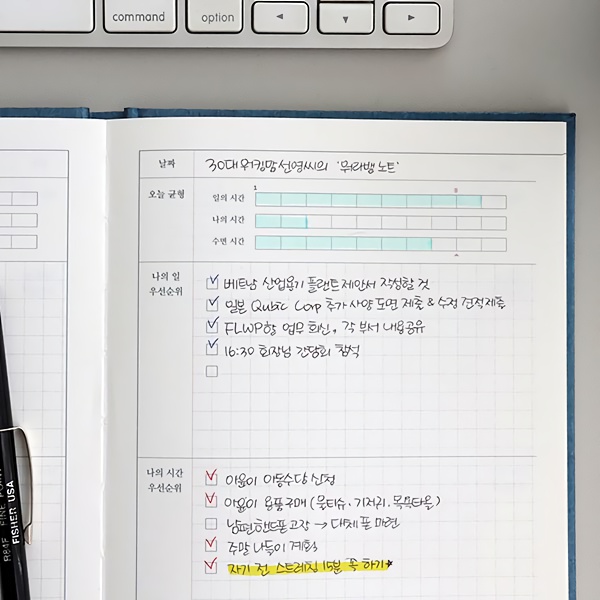 command
option
날짜
30대 워킹맘 선영씨의 '워라밸 노트'
오늘 균형
1
8
일의 시간
나의 시간
수면 시간
나의 일
우선순위
베트남 산업용기 플랜트 제안서 작성할 것
일본 Qubic Corp 추가 사양 도면 제출 & 수정 견적제출
FLWP향 업무 회신, 각 부서 내용공유
16:30 회장님 간담회 참석
나의 시간
우선순위
아윤이 아동수당 신청
아윤이 용품구매 (물티슈, 기저귀, 목욕타올)
남편핸드폰 고장 → 대체폰 마련
주말 나들이 계획
자기 전 스트레칭 15분 꼭 하기★
FINE POINT
FISHER USA